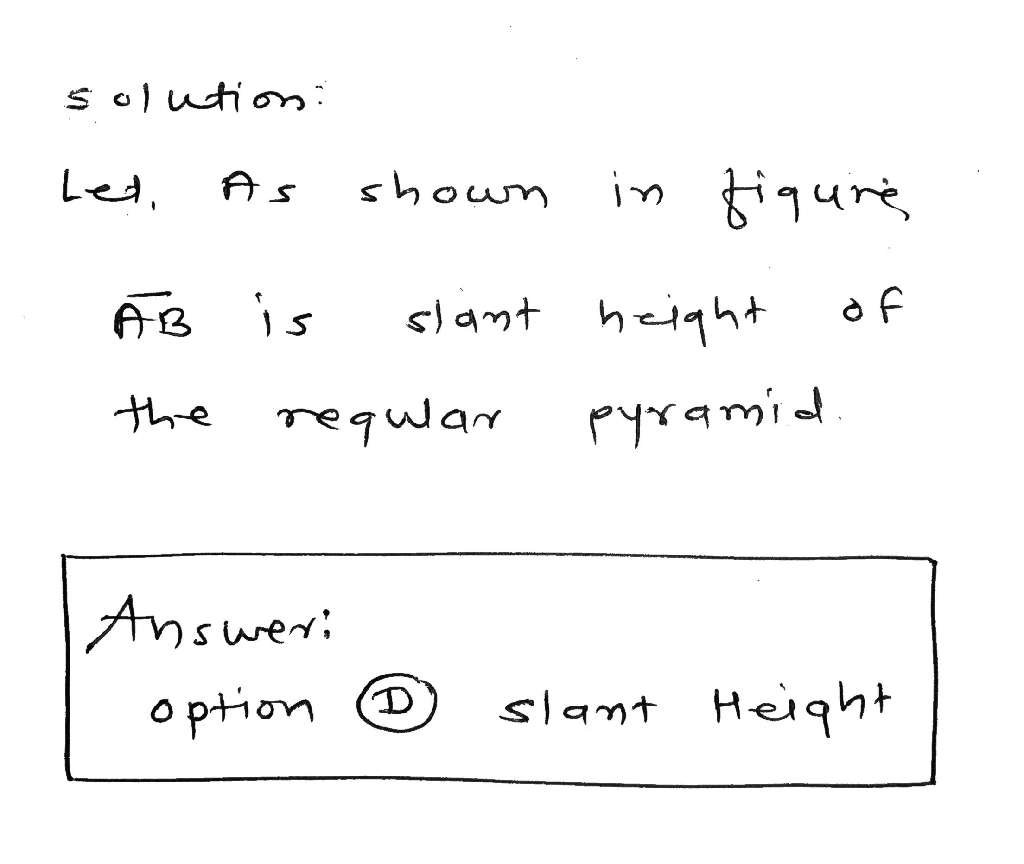 solution:
Let, As shown in figure
A̅B̅ is slant height of
the regular pyramid.
Answer:
option Ⓓ slant Height